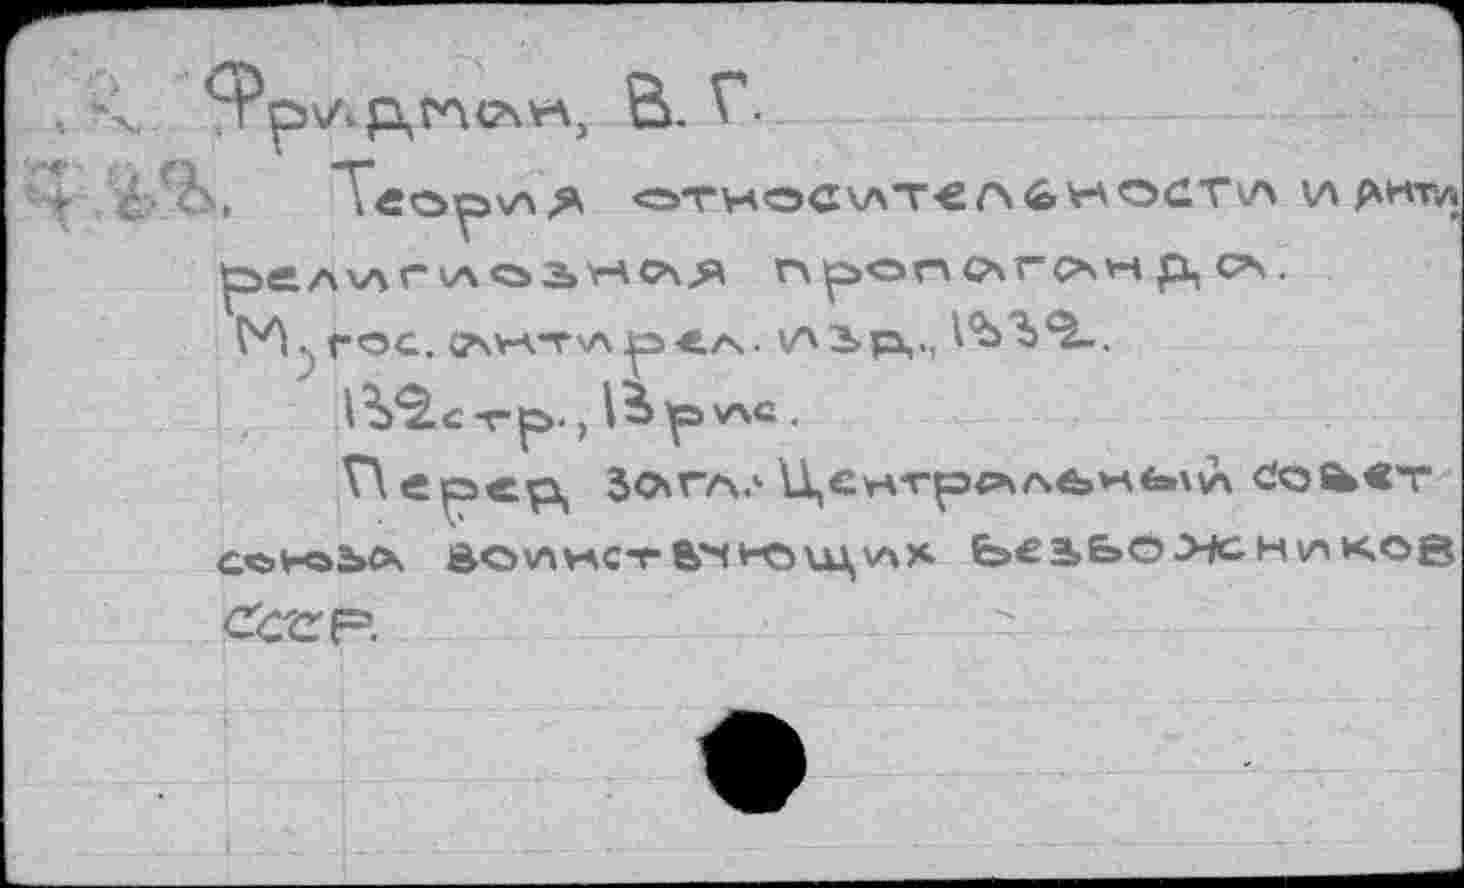 Фридман, В. Г.
Теория относительности и анти
религиозная пропаганда.
М., гос. антирел. изд., 1932.
132 стр., 13 рис.
Перед загл.: Центральный Совет
союза воинствующих безбожников
СССР.